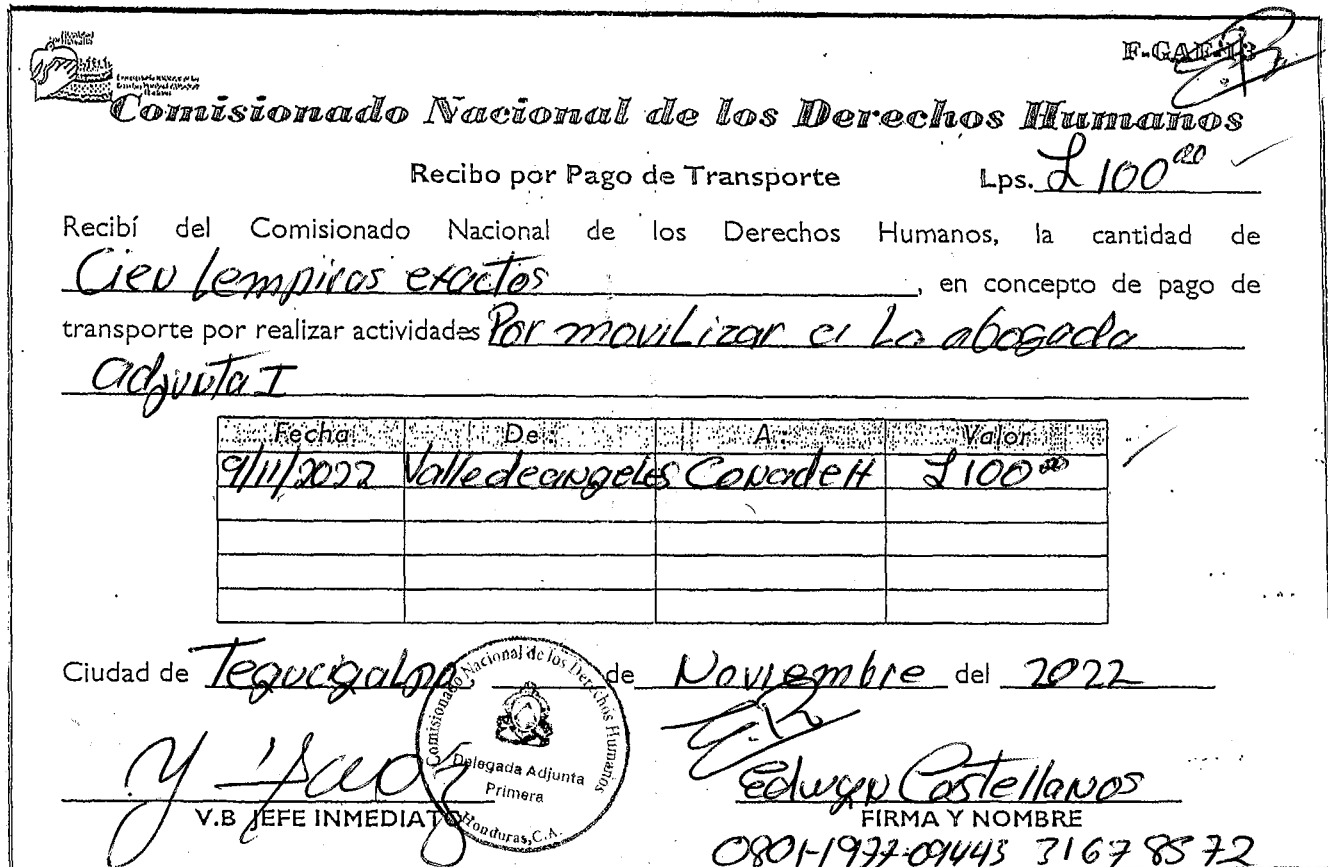 F-GAF-13
Comisionado Nacional de los Derechos Humanos
Recibo por Pago de Transporte Lps. L 100.00
Recibí del Comisionado Nacional de los Derechos Humanos, la cantidad de
Cien lempiras exactos, en concepto de pago de
transporte por realizar actividades Por moviLizar a La abogada
adjunta I
Fecha De A: Valor
9/11/2022 Valledeangeles ConadeH L100.00
Ciudad de Tegucigalpa, de Noviembre del 2022
Comisionado Nacional de los Derechos Humanos
Delegada Adjunta
Primera
Honduras, C.A.
edwyn Castellanos
V.B JEFE INMEDIATO FIRMA Y NOMBRE
31678572